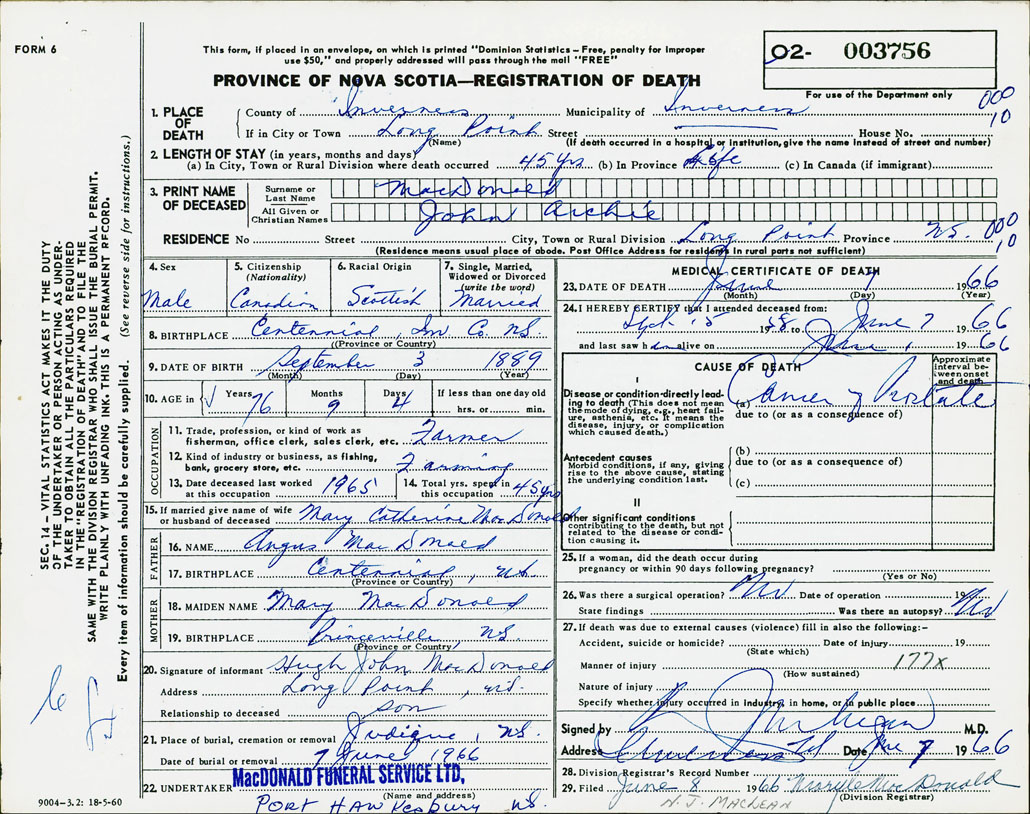 FORM 6
This form, if placed in an envelope, on which is printed "Dominion Statistics – Free, penalty for improper
use $50," and properly addressed will pass through the mail "FREE"
PROVINCE OF NOVA SCOTIA—REGISTRATION OF DEATH
02- 003756
For use of the Department only
000
10
1. PLACE OF DEATH
County of Inverness Municipality of Inverness
If in City or Town Long Point Street House No.
(Name) (If death occurred in a hospital or institution, give name instead of street and number)
2. LENGTH OF STAY (in years, months and days)
(a) In City, Town or Rural Division where death occurred 45 yrs (b) In Province Life (c) In Canada (if immigrant)
3. PRINT NAME OF DECEASED
Surname or Last Name MacDonald
All Given or Christian Names John Archie
RESIDENCE No Street City, Town or Rural Division Long Point Province N.S. 000
10
(Residence means usual place of abode. Post Office Address for residents in rural parts not sufficient)
4. Sex
Male
5. Citizenship
(Nationality)
Canadian
6. Racial Origin
Scottish
7. Single, Married,
Widowed or Divorced
(write the word)
Married
8. BIRTHPLACE Centennial, Inv Co. N.S.
(Province or Country)
9. DATE OF BIRTH September 3 1889
(Month) (Day) (Year)
10. AGE in Years 76 Months 9 Days 4 If less than one day old
hrs. or min.
OCCUPATION
11. Trade, profession, or kind of work as
fisherman, office clerk, sales clerk, etc. Farmer
12. Kind of industry or business, as fishing,
bank, grocery store, etc. Farming
13. Date deceased last worked
at this occupation 1965
14. Total yrs. spent in
this occupation 45 yrs
15. If married give name of wife
or husband of deceased Mary Catherine MacDonald
FATHER
16. NAME Angus MacDonald
17. BIRTHPLACE Centennial, N.S.
(Province or Country)
MOTHER
18. MAIDEN NAME Mary MacDonald
19. BIRTHPLACE Princeville, N.S.
(Province or Country)
20. Signature of informant Hugh John MacDonald
Address Long Point, N.S.
Relationship to deceased son
21. Place of burial, cremation or removal Judique, N.S.
Date of burial or removal 9 June 1966
22. UNDERTAKER MacDONALD FUNERAL SERVICE LTD,
(Name and address)
PORT HAWKESBURY N.S.
9004-3.2: 18-5-60
MEDICAL CERTIFICATE OF DEATH
23. DATE OF DEATH June 7 1966
(Month) (Day) (Year)
24. I HEREBY CERTIFY that I attended deceased from:
Sept 15 1958 to June 7 1966
and last saw him alive on June 1966
CAUSE OF DEATH
Approximate interval between onset and death
I
Disease or condition directly leading to death (This does not mean the mode of dying, e.g., heart failure, asthenia, etc. It means the disease, injury, or complication which caused death.)
(a) Cancer of Prostate
due to (or as a consequence of)
Antecedent causes
Morbid conditions, if any, giving rise to the above cause, stating the underlying condition last.
(b)
due to (or as a consequence of)
(c)
II
Other significant conditions
contributing to the death, but not related to the disease or condition causing it.
25. If a woman, did the death occur during
pregnancy or within 90 days following pregnancy?
(Yes or No)
26. Was there a surgical operation? No Date of operation 19
State findings Was there an autopsy? No
27. If death was due to external causes (violence) fill in also the following:–
Accident, suicide or homicide? Date of injury 19
(State which)
Manner of injury 177x
(How sustained)
Nature of injury
Specify whether injury occurred in industry, in home, or in public place
Signed by M.D.
Address Date June 7 1966
28. Division Registrar's Record Number
29. Filed June 8 1966 MacDonald
(Division Registrar)
N.J. MACLEAN
SEC. 14 – VITAL STATISTICS ACT MAKES IT THE DUTY
OF THE UNDERTAKER OR PERSON ACTING AS UNDER-
TAKER TO OBTAIN ALL THE PARTICULARS REQUIRED
IN THE "REGISTRATION OF DEATH" AND TO FILE THE
SAME WITH THE DIVISION REGISTRAR WHO SHALL ISSUE THE BURIAL PERMIT.
WRITE PLAINLY WITH UNFADING INK. THIS IS A PERMANENT RECORD.
Every item of information should be carefully supplied. (See reverse side for instructions.)